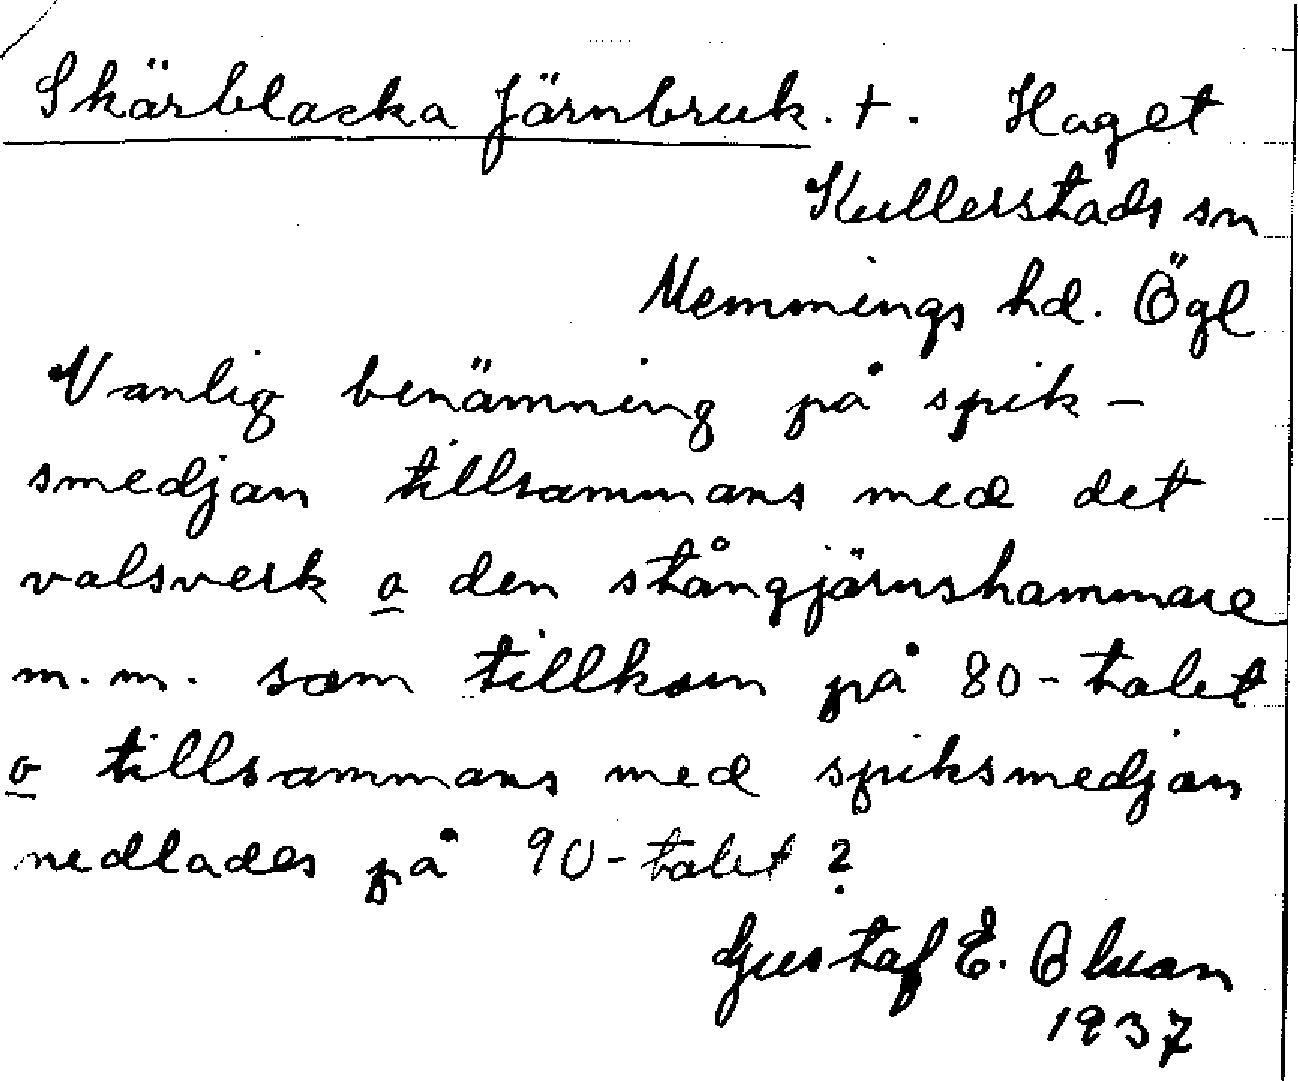 Skärblacka Järnbruk. +. Haget
Kullerstads sn
Memmings hd. Ögl
Vanlig benämning på spik-
smedjan tillsammans med det
valsverk o den stångjärnshammare
m.m. som tillkom på 80-talet
o tillsammans med spiksmedjan
nedlades på 90-talet?
Gustaf E. Olsson
1937